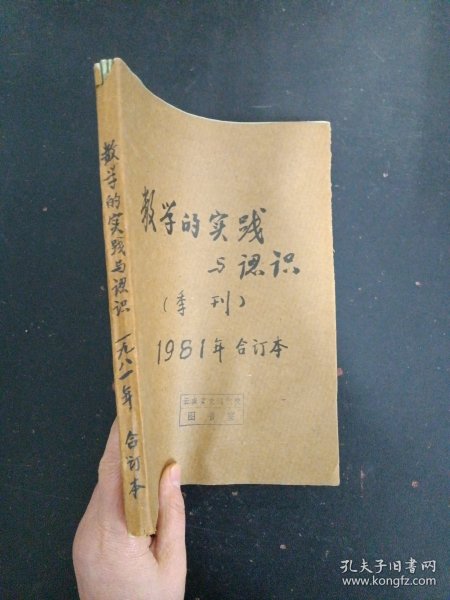 数学的实践与认识 一九八一年 合订本
数学的实践
与认识
(季刊)
1981年合订本
图书室
孔夫子旧书网
www.kongfz.com